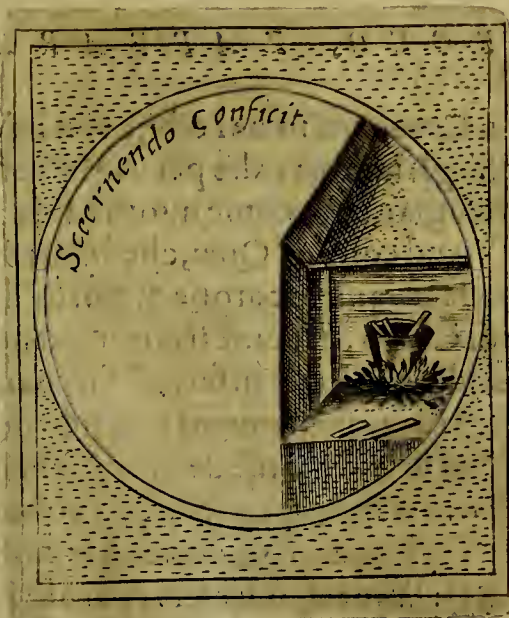 Scecernendo Conficit.